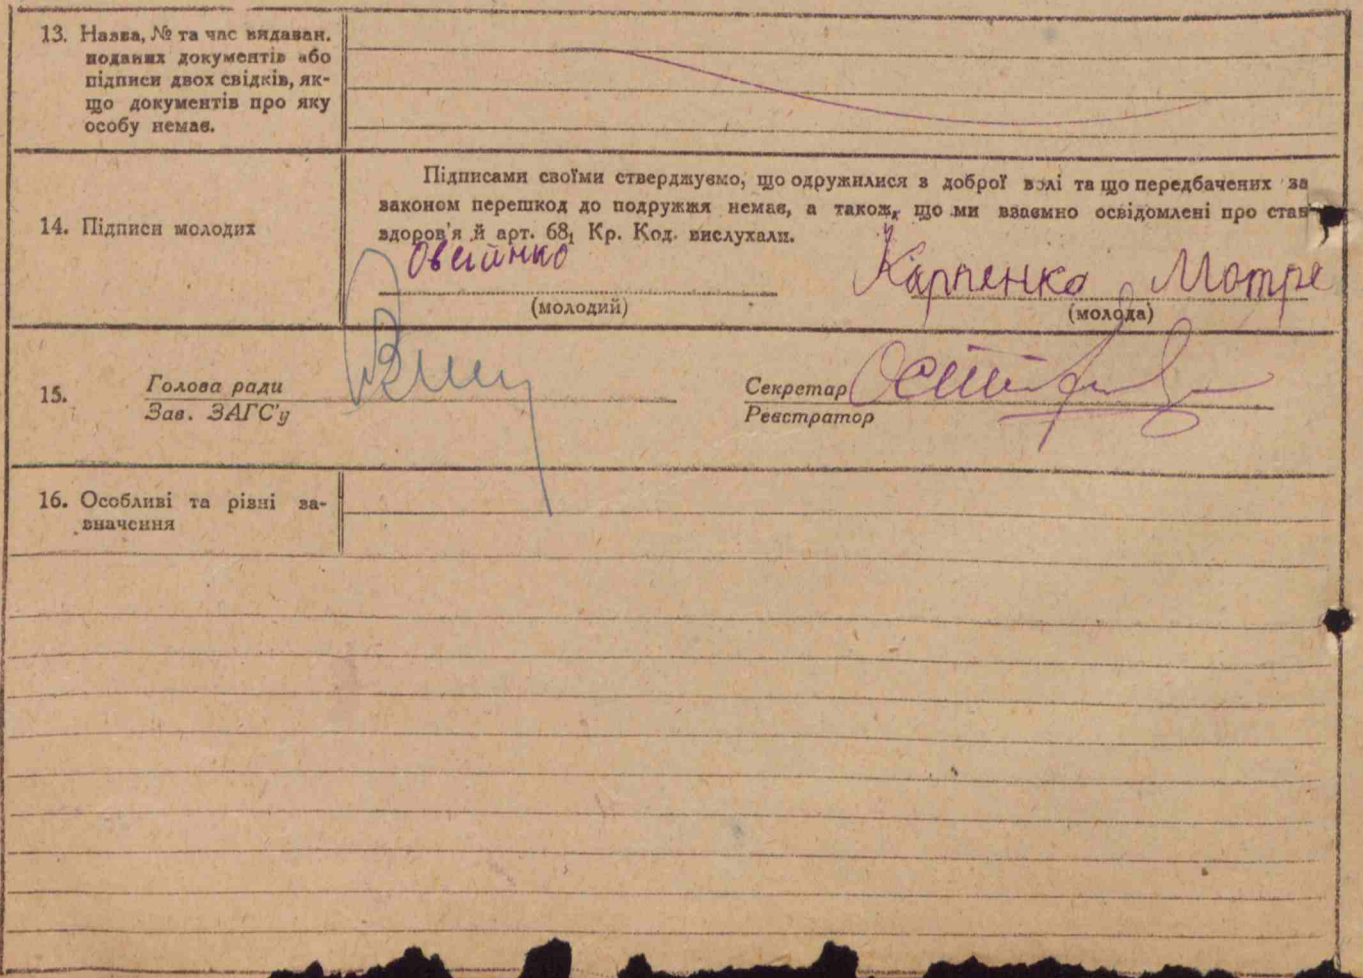 13. Назва, № та час видаван.
поданих документів або
підписи двох свідків, як-
що документів про яку
особу немає.
Підписами своїми стверджуємо, що одружилися з доброї волі та що передбачених за
законом перешкод до подружжя немає, а також, що ми взаємно освідомлені про стан
14. Підписи молодих
здоров'я й арт. 68₁ Кр. Код. вислухали.
Карпенко Мотре
(молодий)
(молода)
15.
Голова ради
Зав. ЗАГС'у
Секретар
Реєстратор
16. Особливі та різні за-
значення